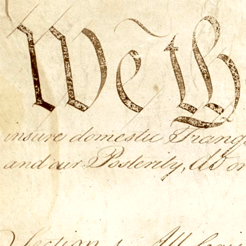 We th
insure domestic Tranq
and our Posterity, do or
Section. 1. All